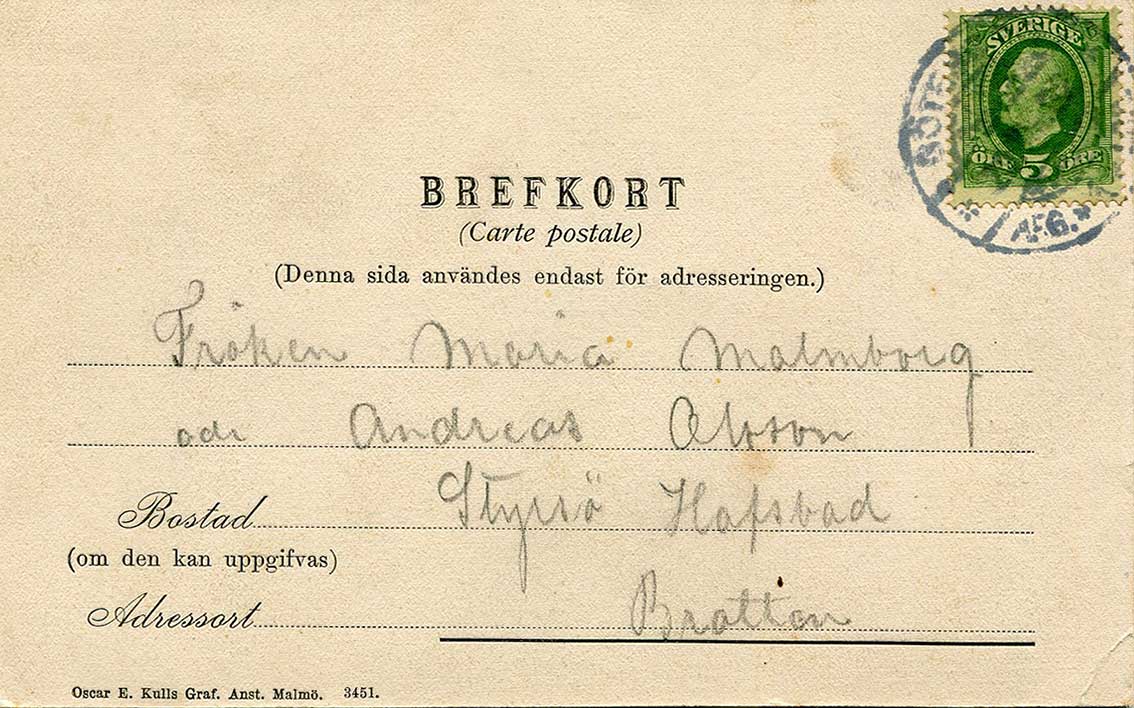 SVERIGE
ÖRE 5 ÖRE
BREFKORT
(Carte postale)
(Denna sida användes endast för adresseringen.)
Fröken Maria Malmborg
adr Andreas Olsson
Bostad Styrsö Hafsbad
(om den kan uppgifvas)
Adressort Brattan
Oscar E. Kulls Graf. Anst. Malmö. 3451.